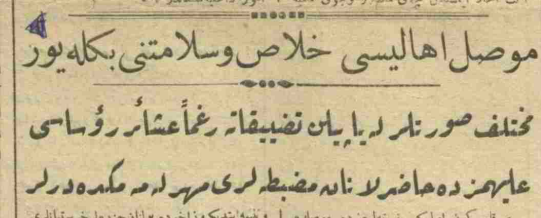 موصل اهاليسى خلاص وسلامتنى بكله‌يور
مختلف صورتلر له ياپيلان تضييقاته رغماً عشائر رؤساسى
عليهمزده حاضرلانان مضبطه لرى مهرله مه مكده درلر